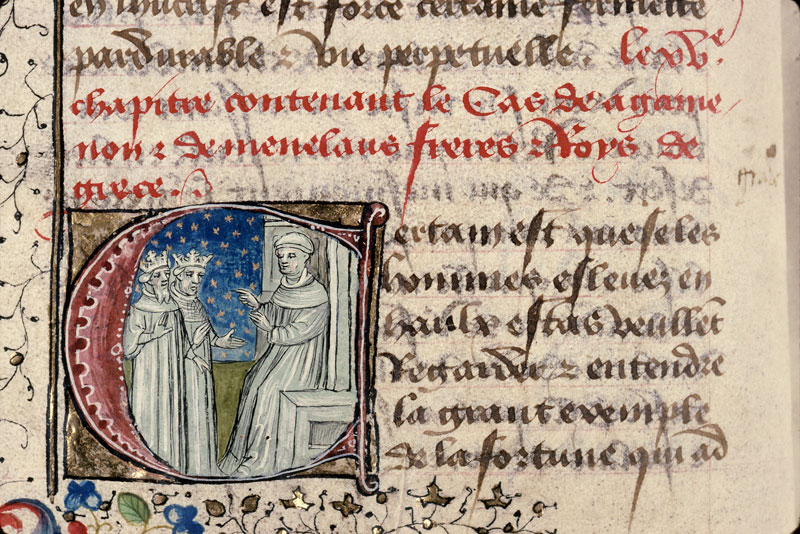 en lhutast est force certaine fermette
pardurable & vie perpetuelle. le xve.
chapitre contenant le Cas de agame
non & de menelaus freres Roys de
grece.
Certain est que se les
hommes esleuez en
haulx estas veullent
Regarder & entendre
la grant exemple
de la fortune qui ad